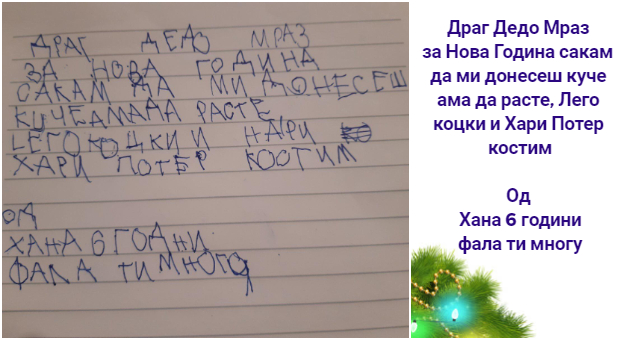 ДРАГ ДЕДЗ МРАЗ
ЗА НОВА ГОДИНА
САКАМ ДА МИ ДОНЕСЕШ
КУЧЕАМАДА РАСТЕ
LЕГОКОЦКИ И НАРИ
ХАРИ ПОТЕР КОСТИМ
ОД
ХАНА 6 ГОДНИ
ФАЛА ТИ МНОГО
Драг Дедо Мраз
за Нова Година сакам
да ми донесеш куче
ама да расте, Лего
коцки и Хари Потер
костим
Од
Хана 6 години
фала ти многу